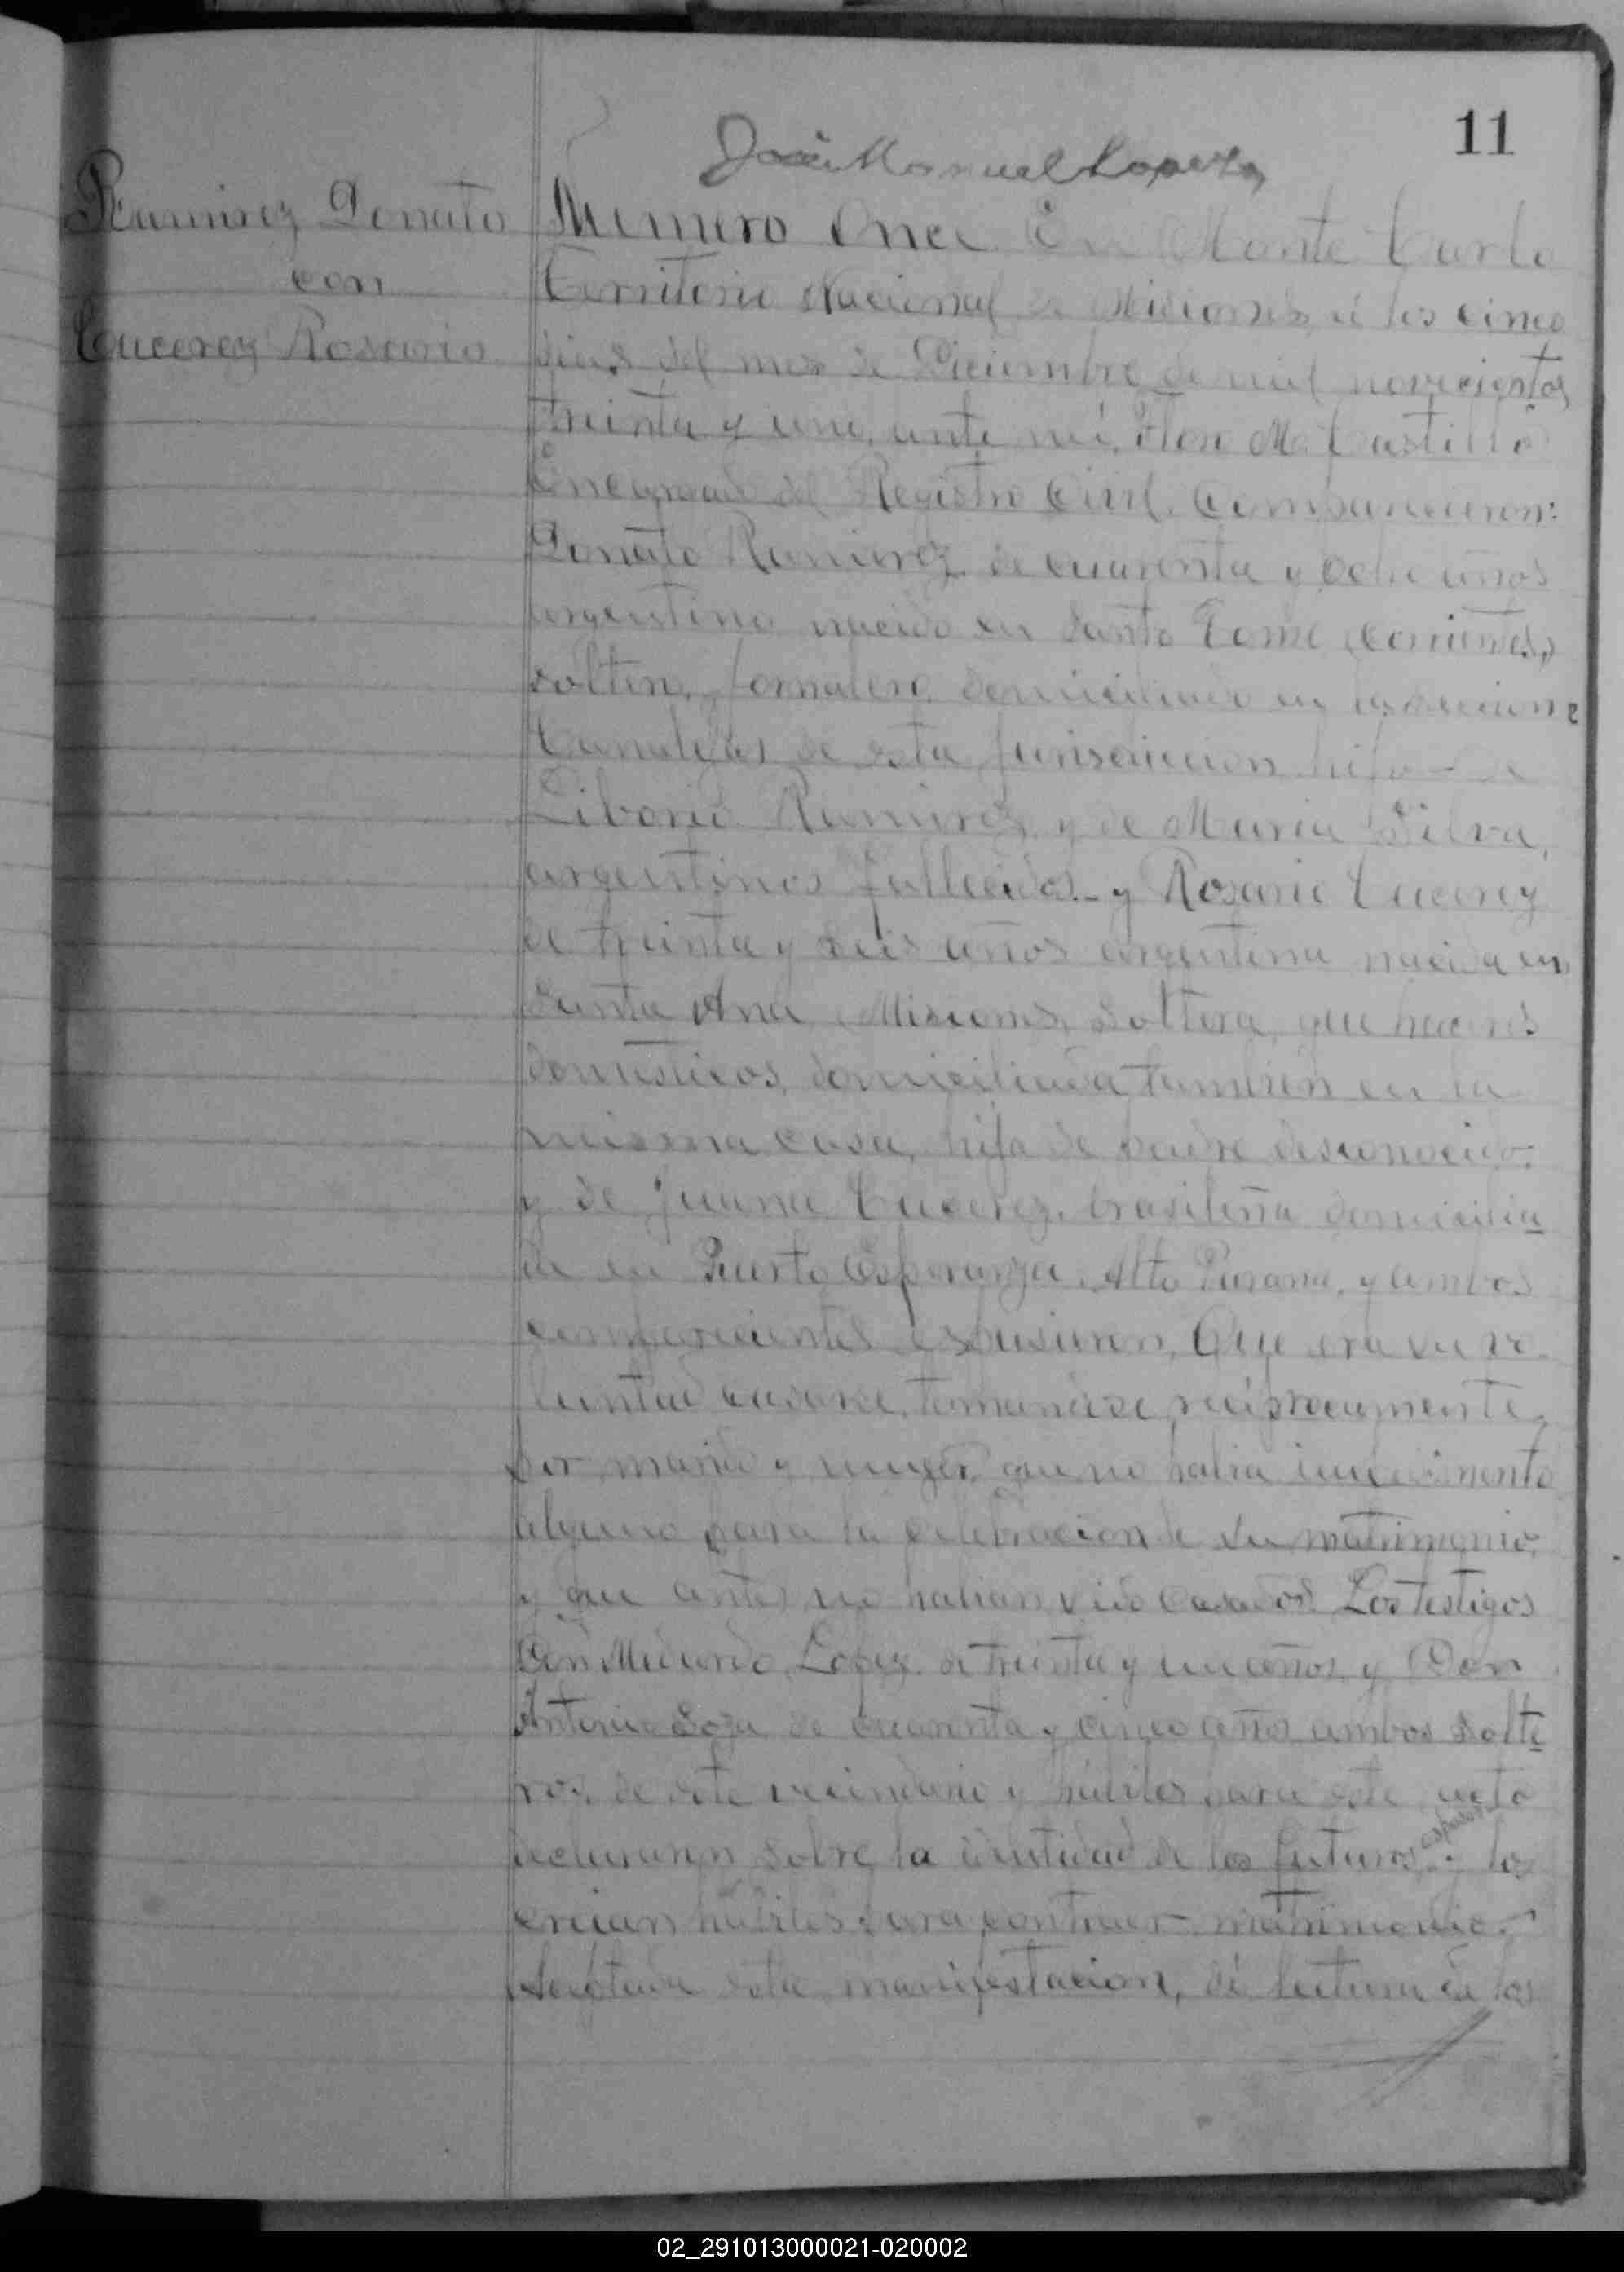 11
José Manuel Lopez
Ramirez Donato
con
Cacerez Rosario
Numero Once En Monte Carlo
Territorio Nacional de Misiones, á los cinco
dias del mes de Diciembre de mil novecientos
treinta y uno, ante mi, M. Castillo
Encargado del Registro Civil. Comparecieron:
Donato Ramirez de cuarenta y ocho años
argentino nacido en Santo Tomé (Corrientes)
soltero, jornalero, domiciliado en
de esta jurisdiccion hijo de
Liborio Ramirez y de Maria Silva,
argentinos fallecidos.- y Rosario Cacerez
de treinta y seis años argentina nacida en
Santa Ana, Misiones, soltera, que haceres
domésticos, domiciliada tambien en la
misma casa, hija de padre desconocido.
y de Juana Cacerez, brasileña domicilia
da en Puerto Esperanza, Alto Parana, y ambos
comparecientes espusieron, Que era su vo
luntad casarse, tomandose reciprocamente,
por marido y muger, que no habia impedimento
alguno para la celebracion de su matrimonio,
y que antes no habian sido casados. Los testigos
Don Lopez de treinta y un años y Don
Antonio Soza de cuarenta y cinco años ambos solte
ros, de este vecindario y hábiles para este acto
declararon sobre la identidad de los futuros esposos y los
creian hábiles para contraer matrimonio.-
Aceptada esta manifestacion, dí lectura á los
02_291013000021-020002